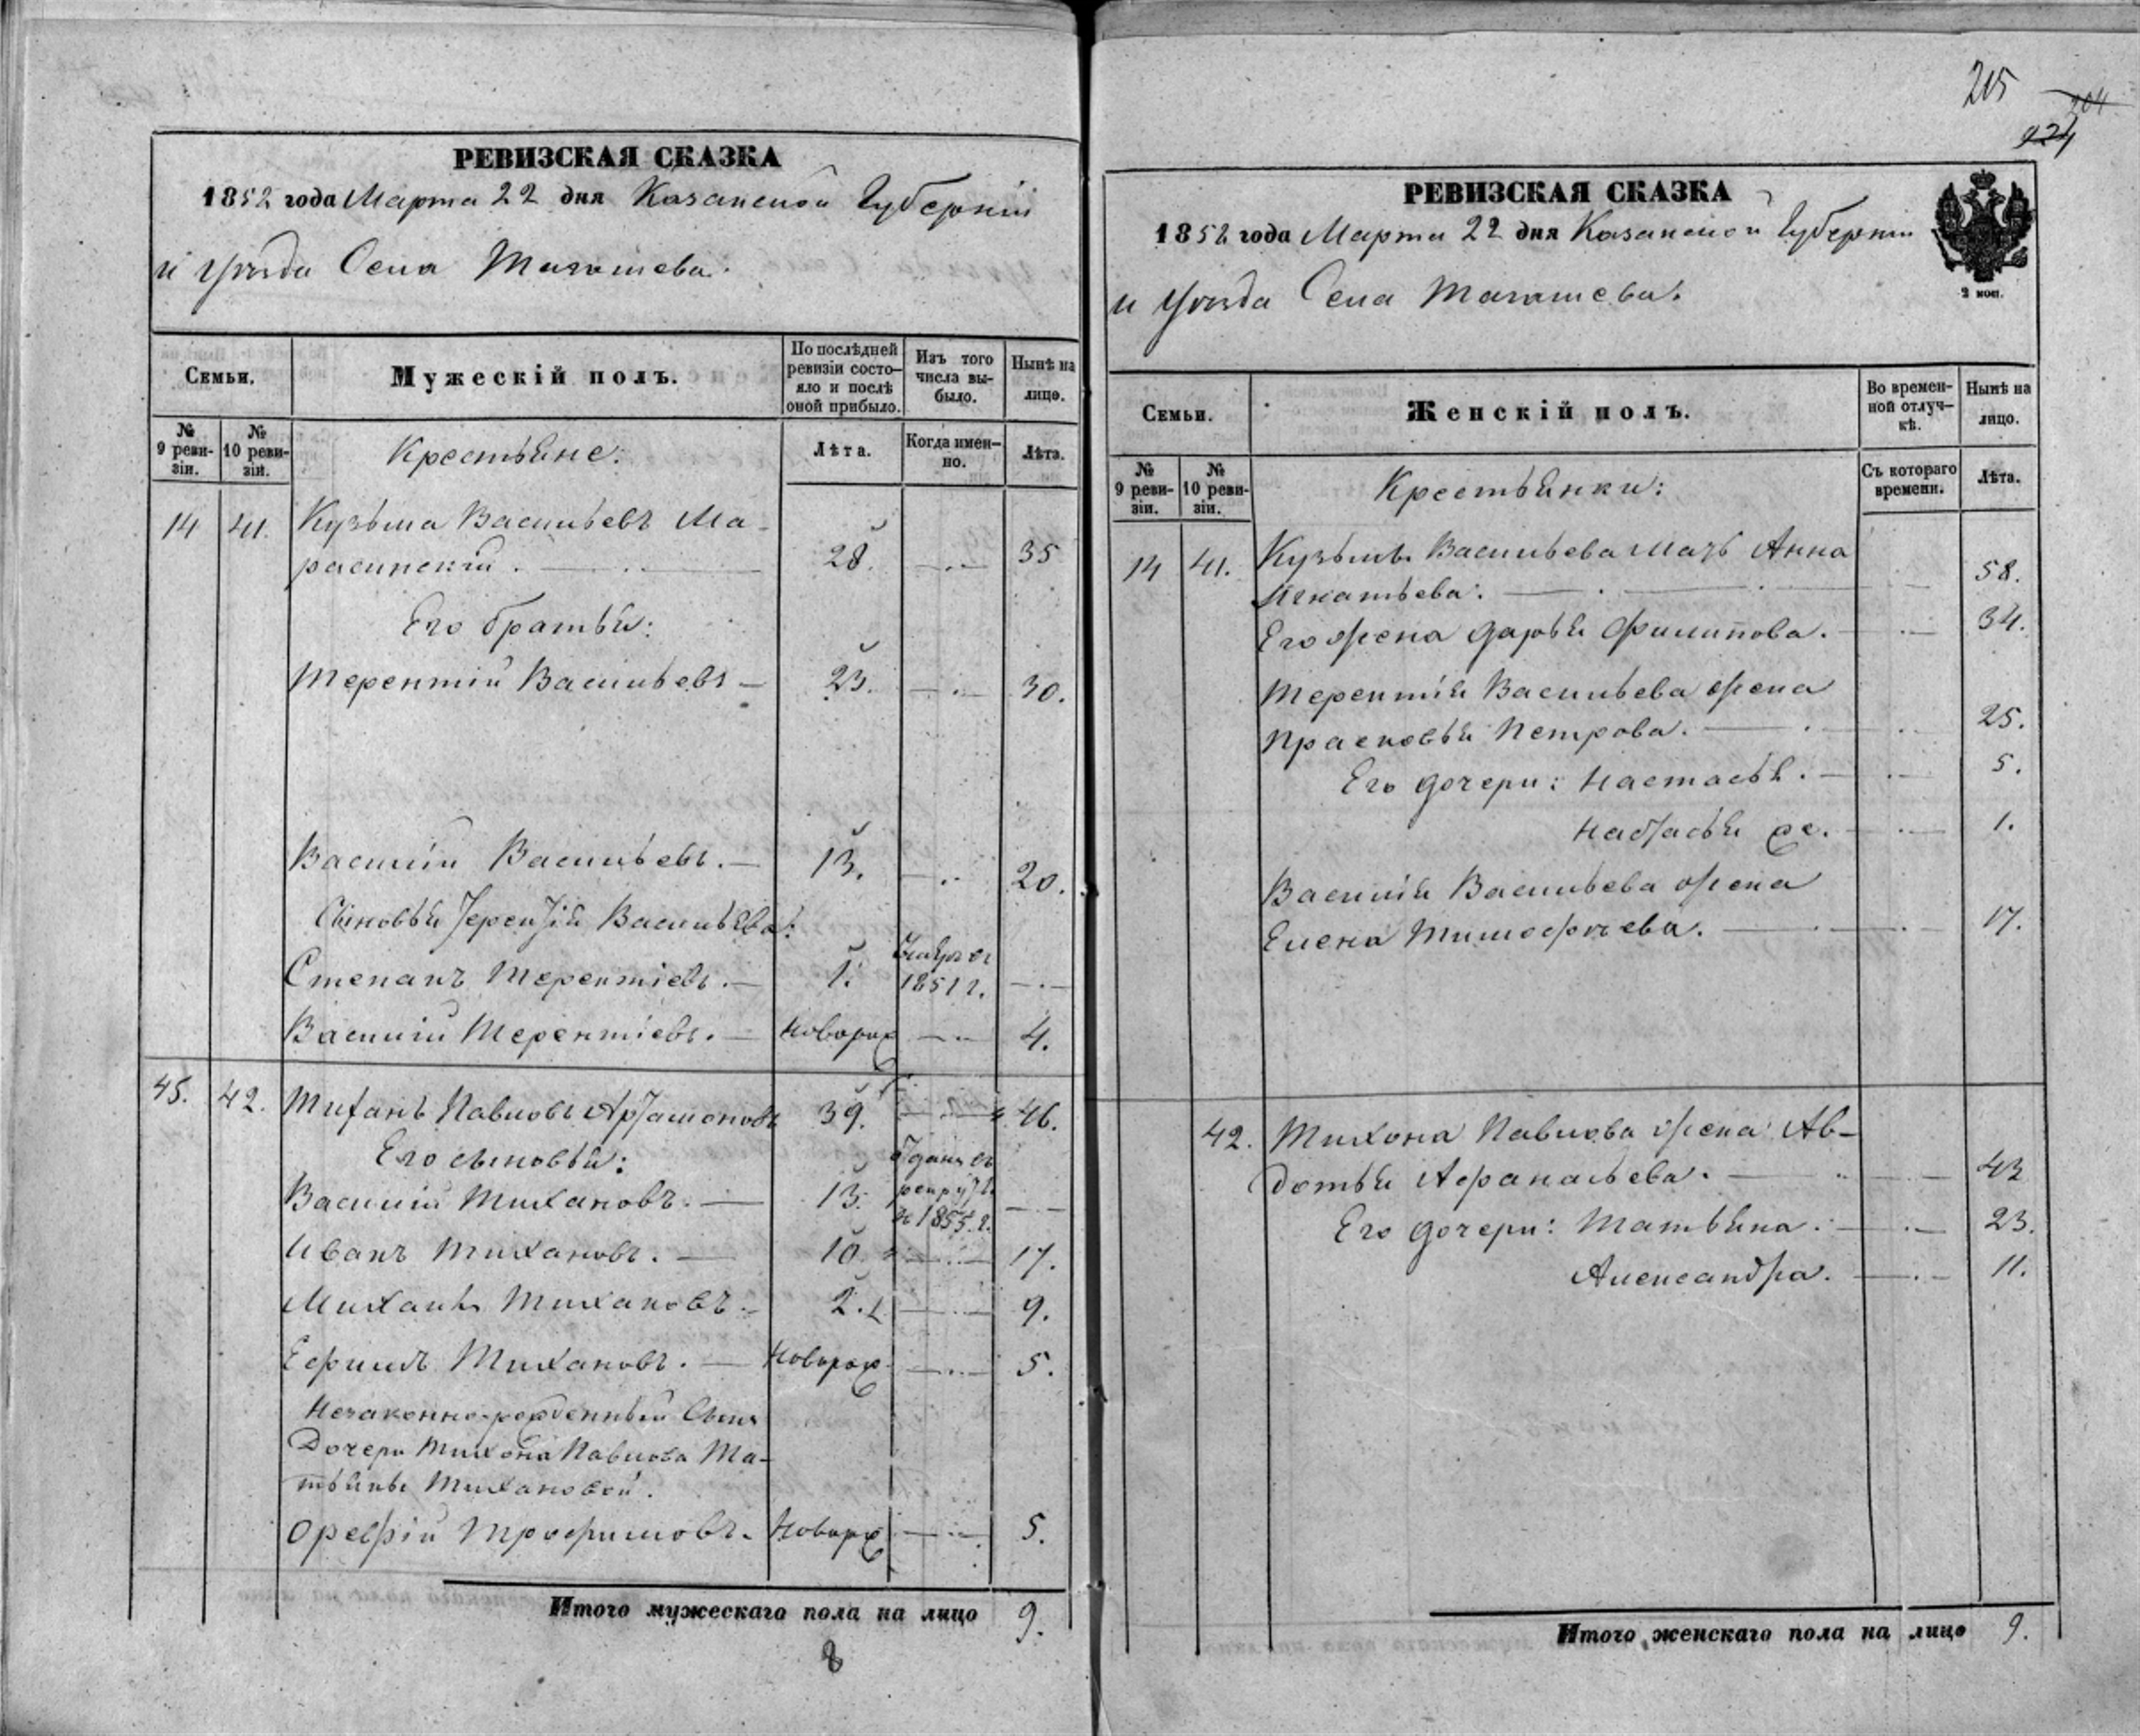 РЕВИЗСКАЯ СКАЗКА
1852 года Марта 22 дня Казанской Губерніи
и Уѣзда Села
Семьи.
Мужескій полъ.
По послѣдней ревизіи состояло и послѣ оной прибыло.
Изъ того числа выбыло.
Нынѣ на лицо.
№ 9 ревизіи.
№ 10 ревизіи.
Крестьяне:
Лѣта.
Когда именно.
Лѣта.
14 41. Кузьма Васильевъ Ма-
расинскій. 28. 35
Его братья:
Терентій Васильевъ 23. 30.
Василій Васильевъ. 13. 20.
Сыновья Терентія Васильева:
Степанъ Терентіевъ. 1. 1851 г.
Василій Терентіевъ. Новорож 4.
45. 42. Тиханъ Павловъ Артамоновъ 39. 46.
Его сыновья:
Отданъ въ
Василій Тихановъ. 13. рекруты
в 1855. г.
Иванъ Тихановъ. 10 17.
Михаилъ Тихановъ. 2. 9.
Ефимъ Тихановъ. Новорож. 5.
Незаконно-рожденный Сынъ
Дочери Тихона Павлова Та-
тьяны Тихановой.
Трофимовъ. Новорж 5.
Итого мужескаго пола на лицо 9.
8
215
204
224
РЕВИЗСКАЯ СКАЗКА
1858 года Марта 22 дня Казанской Губерніи
и Уѣзда Села
2 коп.
Семьи.
Женскій полъ.
Во временной отлучкѣ.
Нынѣ на лицо.
№ 9 ревизіи.
№ 10 ревизіи.
Крестьянки:
Съ котораго времени.
Лѣта.
14 41. Кузьмы Васильева Мать Анна
Игнатьева. 58.
Его жена Дарья Филипова. 34.
Терентія Васильева жена
Прасковья Петрова. 25.
Его дочери: Настасья. 5.
Настасья же. 1.
Василія Васильева жена
Елена Тимофѣева. 17.
42. Тихона Павлова жена Ав-
дотья Афанасьева. 43
Его дочери: Татьяна. 23.
Александра. 11.
Итого женскаго пола на лицо 9.